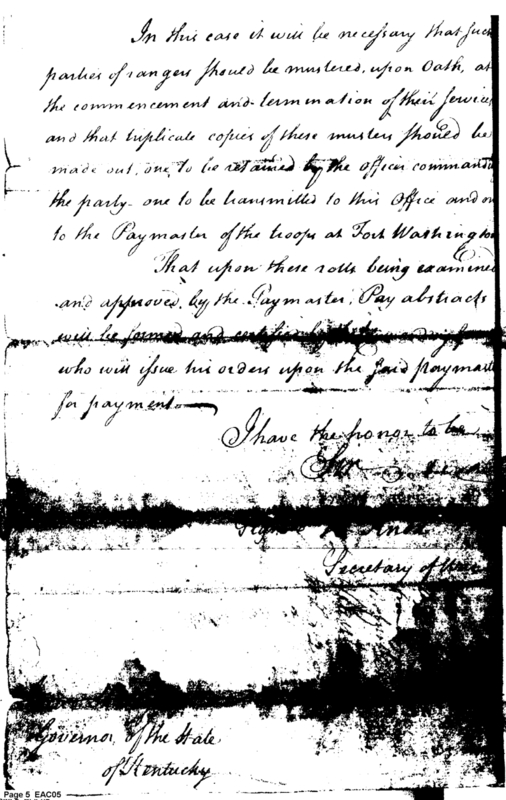 In this case it will be necessary that such
parties of rangers should be mustered, upon Oath, at
the commencement and termination of their services
and that triplicate copies of these musters should be
made out, one to be retained by the officer command
the party - one to be transmitted to this Office and on
to the Paymaster of the troops at Fort Washington
That upon these rolls being examined
and approved, by the Paymaster, Pay abstracts
will be formed and certified by
who will issue his orders upon the said paymast
for payment
I have the honor to be
Sir
Secretary of War
Governor of the State
of Kentucky
Page 5 EAC05